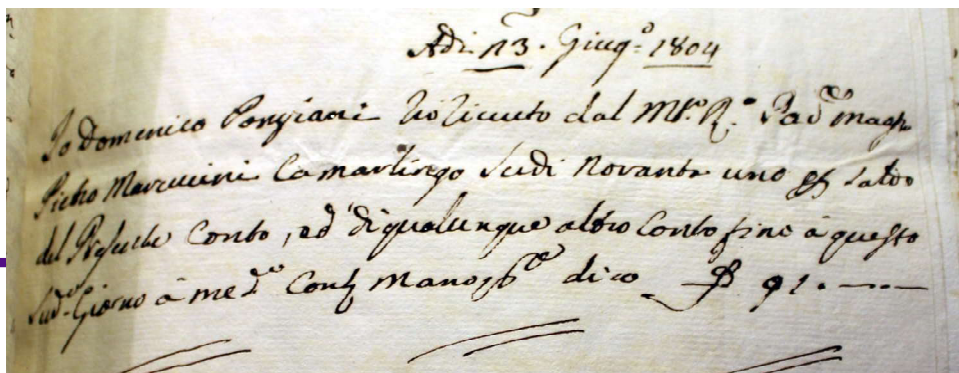 Adi 13. Giug.o 1804
Io Domenico ho riceuto dal M.to R.o Pad.e
Pietro Marcucini Camarlingo Scudi Novanta uno per saldo
del Presente Conto, ed di qualunque altro Conto fino à questo
Sud.o Giorno à me d.o Cont. Mano dico 91.